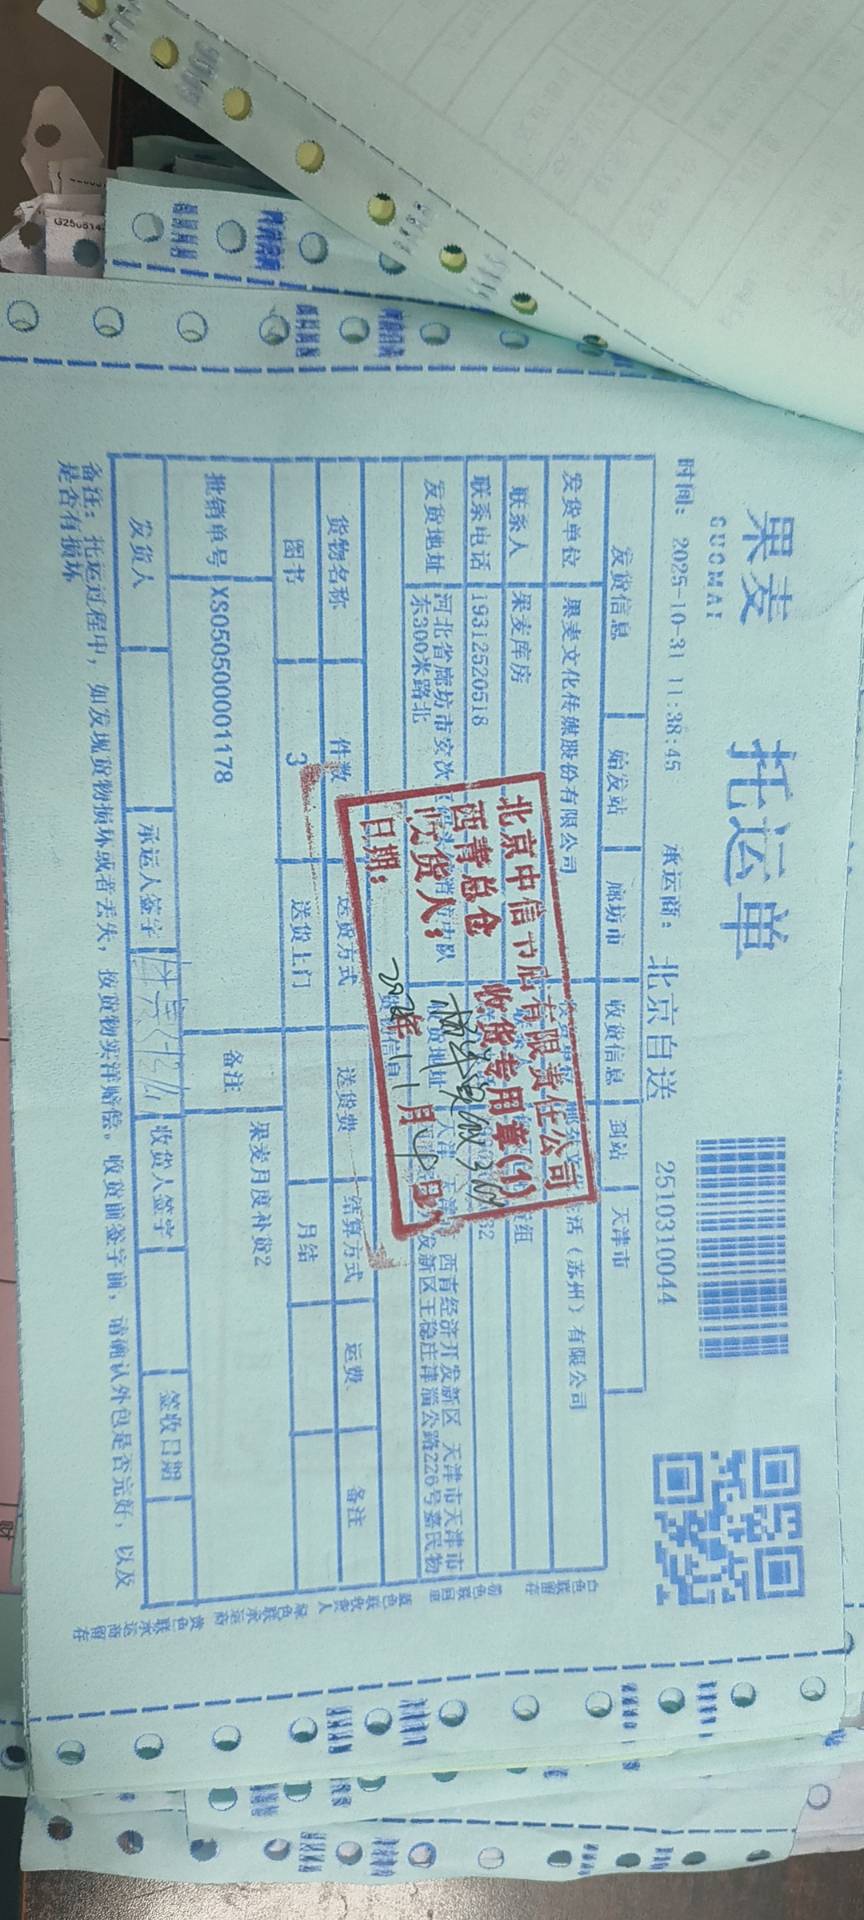 果麦
GUOMAI
托运单
2510310044
时间: 2025-10-31 11:38:45
承运商: 北京自送
发货信息 始发站 廊坊市 收货信息 到站 天津市
发货单位 果麦文化传媒股份有限公司
活（苏州）有限公司
联系人 果麦库房
组
联系电话 19312520518
32
发货地址 河北省廊坊市安次
东300米路北
队
货地址 天津
西青经济开发新区 天津市天津市
发新区王稳庄津淄公路226号嘉民物
货物名称 件数 运货方式 送货费 结算方式 运费 备注
图书 3 送货上门 月结
批销单号 XS050500001178 备注 果麦月度补货2
发货人 承运人签字 收货人签字 签收日期
备注: 托运过程中, 如发现货物损坏或者丢失, 按货物实洋赔偿。收货前签字前, 请确认外包是否完好, 以及
是否有损坏
北京中信书店有限责任公司
西青总仓 收货专用章(1)
收货人:
日期: 年 11月 日
白色联留存
蓝色联收货人
绿色联承运商
黄色联承运商留存
G250514